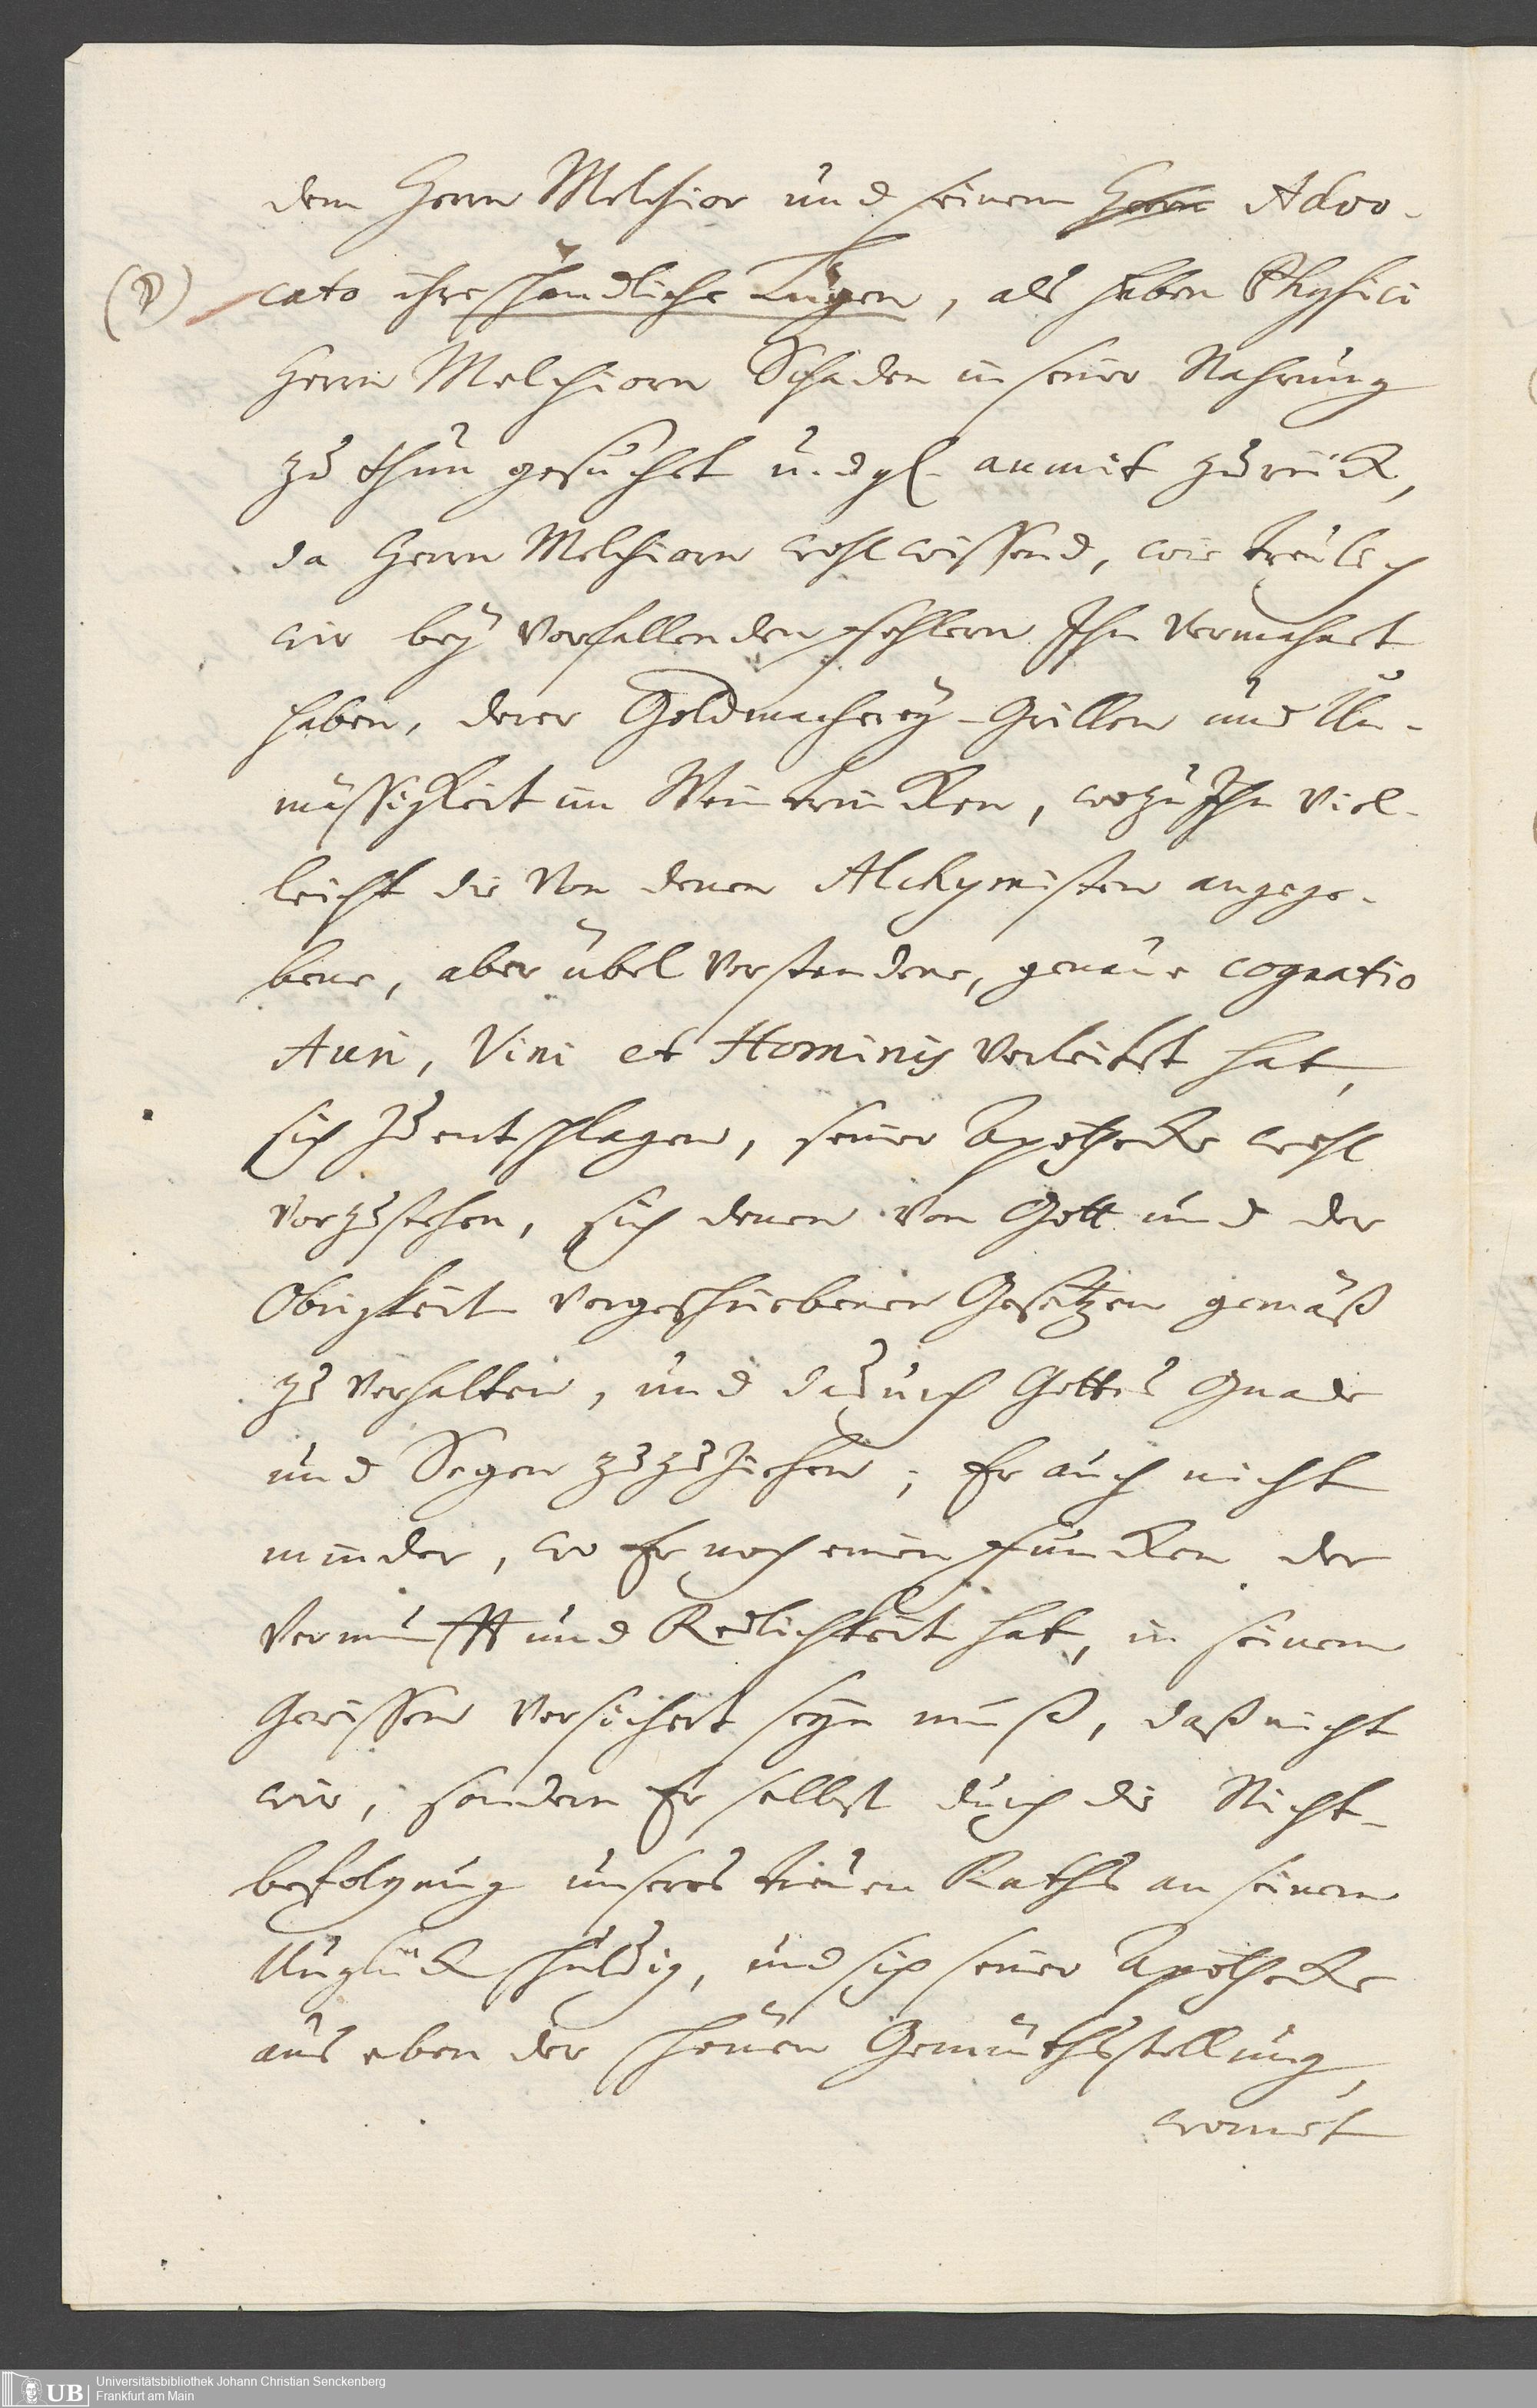 dem Herrn Melchior und seinem Herrn Advo-
(D) cato ihre schändliche Lügen, als haben Physici
Herrn Melchiorn Schaden in seiner Nahrung
zu thun gesuchet u. dgl. anmit zurück,
da Herrn Melchiorn wohl wissend, wie treulich
wir bey vorfallenden Fehlern Ihn vermahnet
haben, derer Goldmacherey-Grillen und Un-
mässigkeit im Weintrincken, wozu Ihn viel-
leicht die von denen Alchymisten angege-
bene, aber übel verstandene, genaue cognatio
Auri, Vini et Hominis verleitet hat,
sich zu entschlagen, seiner Apothecke wohl
vorzustehen, sich denen von Gott und der
Obrigkeit vorgeschriebenen Gesetzen gemäß
zu verhalten, und dadurch Gottes Gnade
und Segen zuzuziehen; Er auch nicht
minder, wo Er noch einen Funcken der
Vernunfft und Redlichkeit hat, in seinem
Gewissen versichert seyn muß, daß nicht
wir, sondern Er selbst durch die Nicht-
befolgung unseres treuen Raths an seinem
Unglück schuldig, und sich seiner Apothecke
aus eben der schönen Gemüthsstellung,
womit
Universitätsbibliothek Johann Christian Senckenberg
Frankfurt am Main
UB